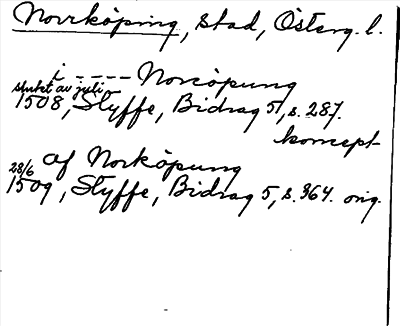 Norrköping, stad, Österg. l.
i ---- Norcöpung
slutet av juli
1508, Styffe, Bidrag 5, s. 287.
koncept
af Norköpung
28/6
1509, Styffe, Bidrag 5, s. 364. orig.